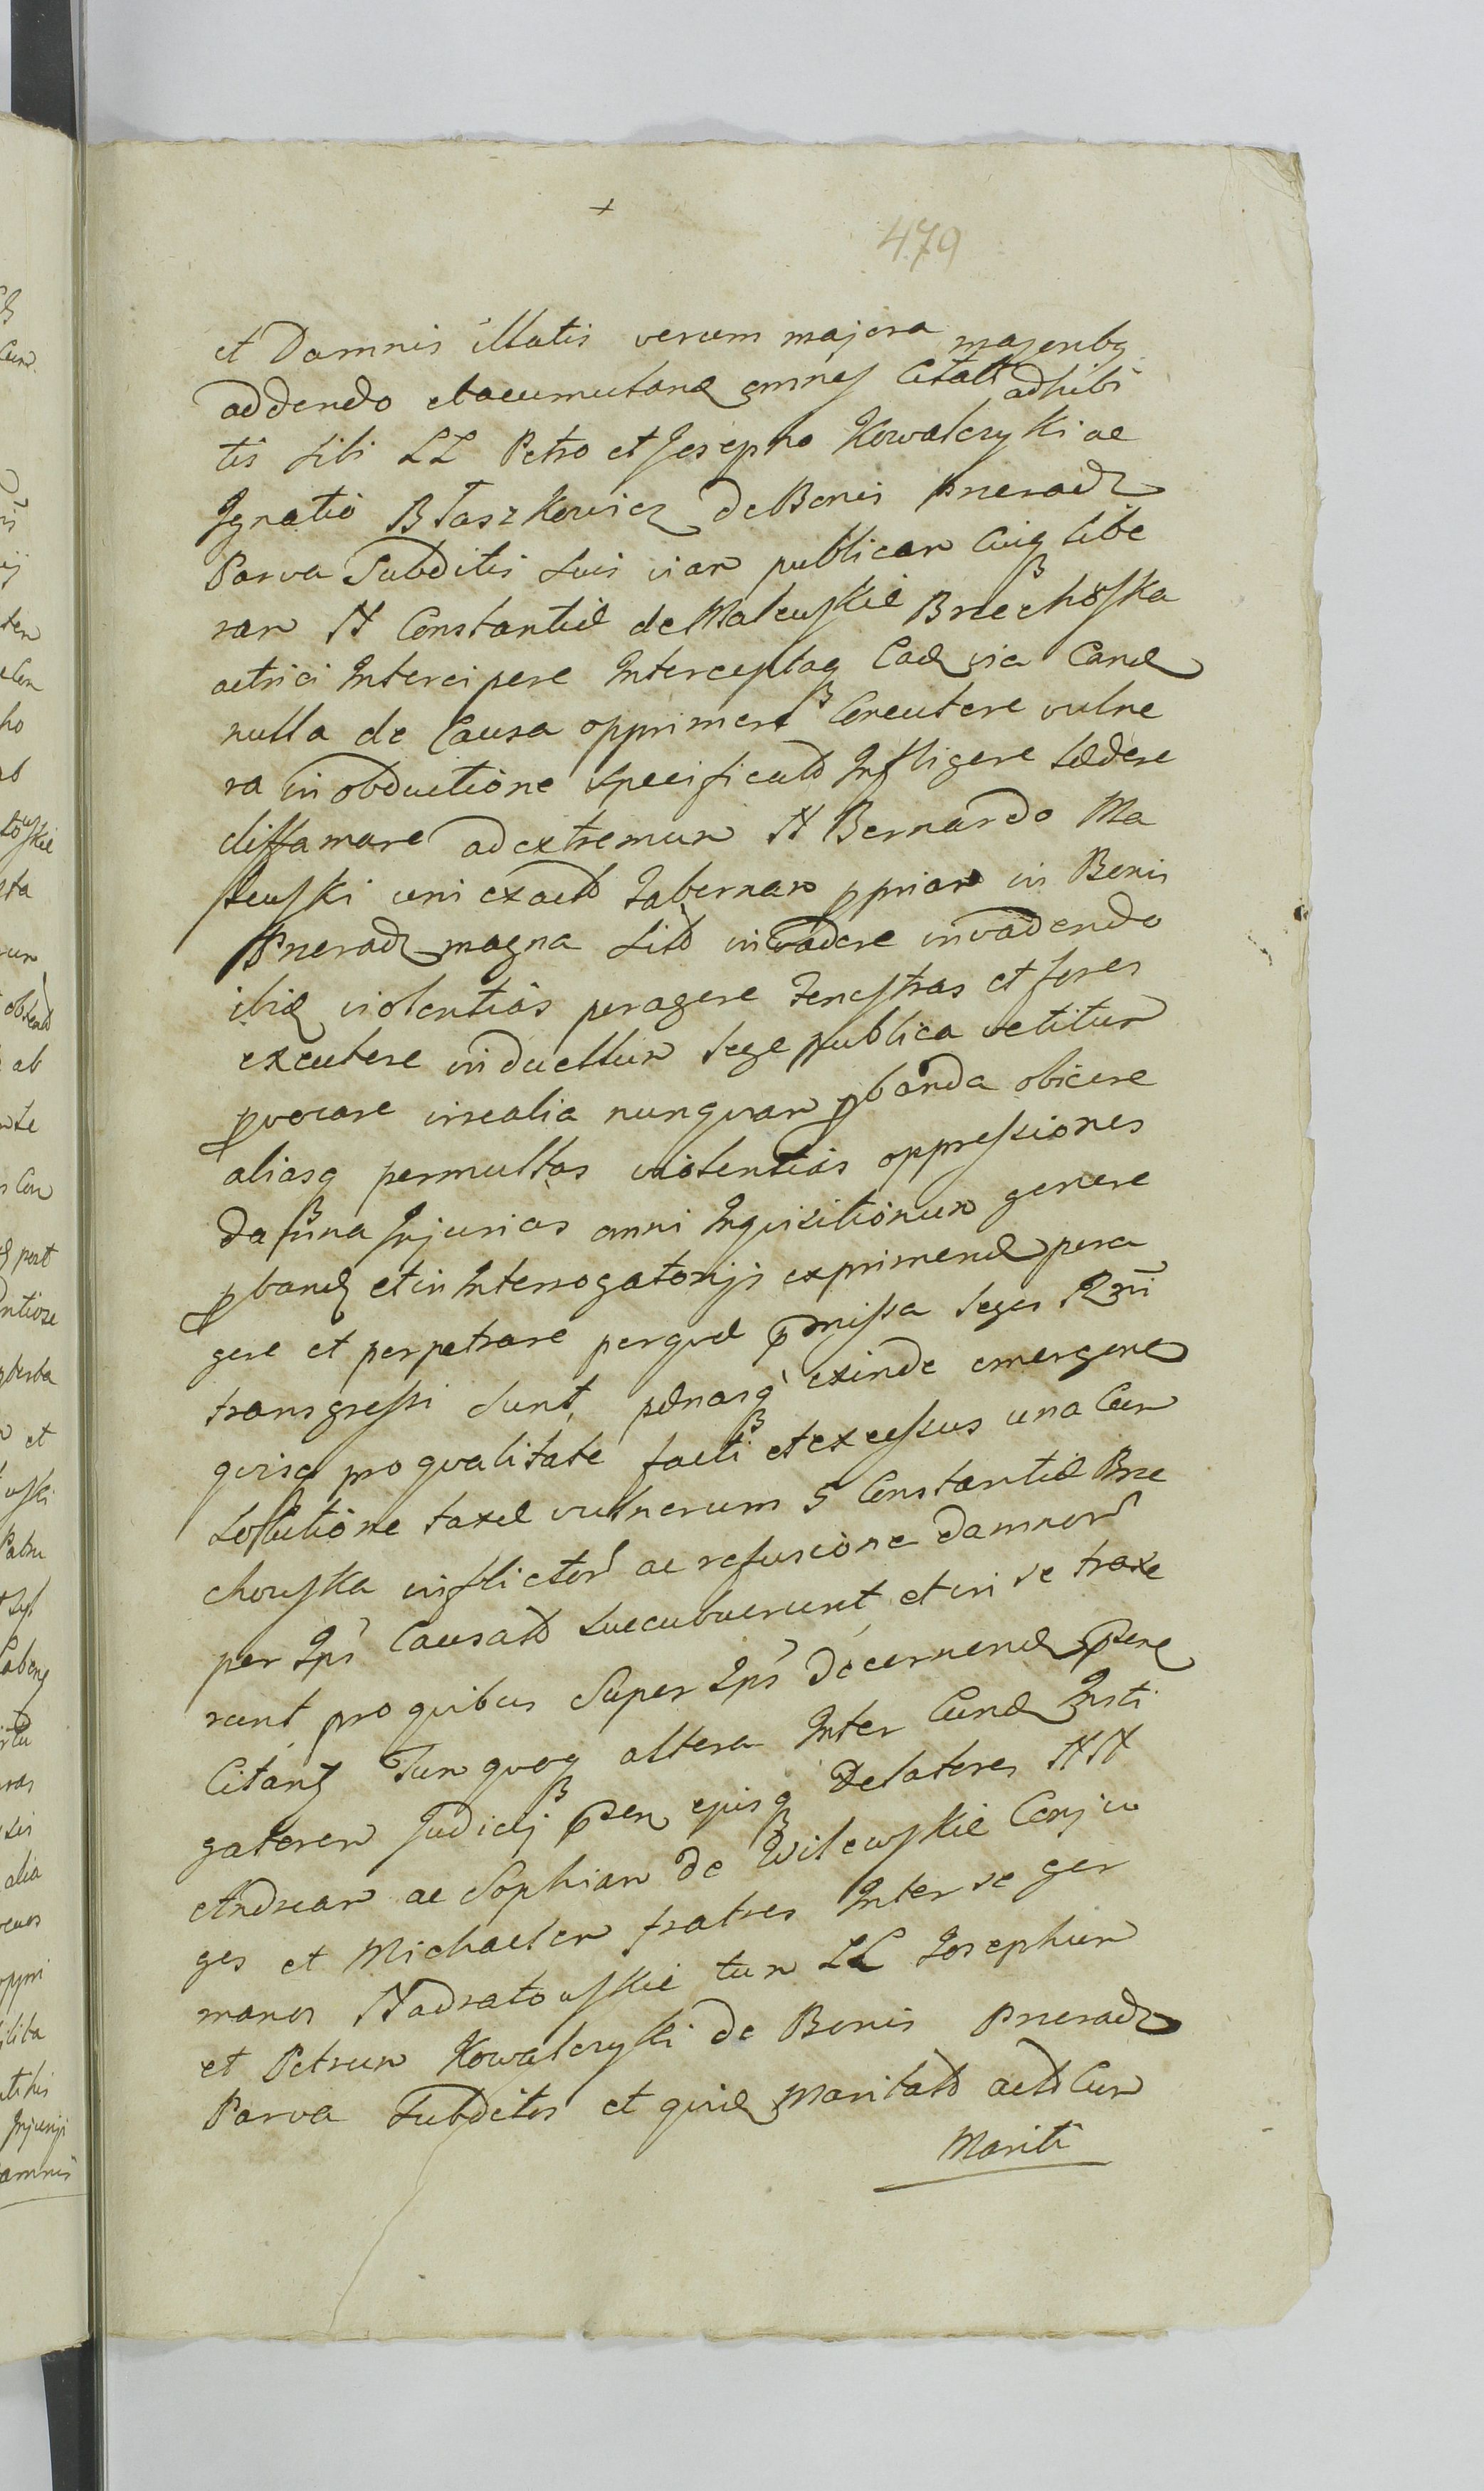 +
479
et Damnis illatis verum majora majoribq
addendo et acumuland omnes Citati adhibi
tis sibi LL Petro et Josepho Kowalczyki ac
Ignatio Błaszkowicz de Bonis Pneradz
Parva Subditis suis viam publicam Cuiq libe
ram N Constantiæ de Maleuskie Brzechoska
actrici Intercipere Interceptaq Eadq via Eand
nulla de Causa opprimere Concutere vulne
ra in obductione specificata Infligere lædere
diffamare ad extremum N Bernardo Ma
leuski uni ex actd tabernam ppriam in Bonis
Pneradz magna sitd invadere invadendo
ibiq violentias peragere fenestras et fores
excutere in duellum lege publica vetitum
pvocare irrealia nunquam pbanda obicere
aliasq permultas violentias oppressiones
damna Injurias omni Inquisitionum genere
pband et in Interrogatorijs exprimend pera
gere et perpetrare perque pmissa leges Rgni
transgressi sunt, pænasq exinde emergene
quisq pro qualitate facti et excessus una Cum
solutione taxæ vulnerum 5 Constantiæ Brze
chouska inflictor ac refusione damnor
per Ips Causatd succubuerunt, et in se traxe
runt, pro quibus super Ips decernend psene
Citant Tum quoq altera Inter Eand Insti
gatorem Judicij psen ejusq Delatores NN
Andream ac Sophiam de Wilewskie Conju
ges et Michaelem fratres Inter se ger
manos Nadratouskie tum LL Josephum
et Petrum Kowalczyki de Bonis Pneradz
Parva Subditos et quid Maritatd actd Cum
Mariti